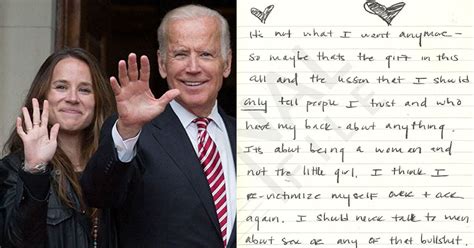 It's not what I want anymore -
So maybe thats the gift in this
all and the lesson that I should
only tell people I trust and who
have my back - about anything.
Its about being a woman and
not the little girl. I think I
re-victimize myself over + over
again. I should never talk to men
about sex or any of that bullshit.